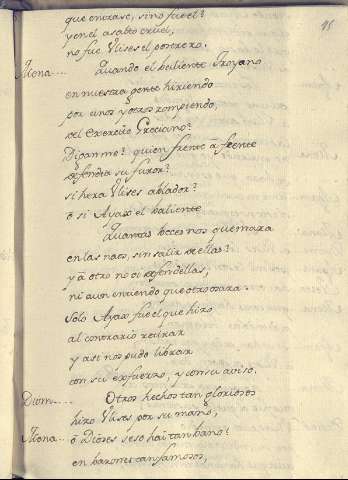 que entrase, sino fue el?
yen el asalto cruel,
no fue Ulises el postrero.
Quando el baliente Troyano
en nuestra gente hiriendo
por unos y otros rompiendo,
del Exercito Greciano?
Diganme? quien frente à frente
defendia su furor?
si hera Ulises ablador?
ô si Ayax el baliente
Quantas beces nos quemara
en las naos, sin salir de ellas?
y à otro no oi defendellas,
ni aun entiendo que otro osara.
Solo Ayax fue el que hizo
al contrario retirar
y asi nos pudo librar
con su esfuerzo, y con su aviso.
Diom.... Otros hechos tan gloriosos
hizo Ulises por su mano,
ô Dioses seso hai tan bano!
en barones tan famosos,